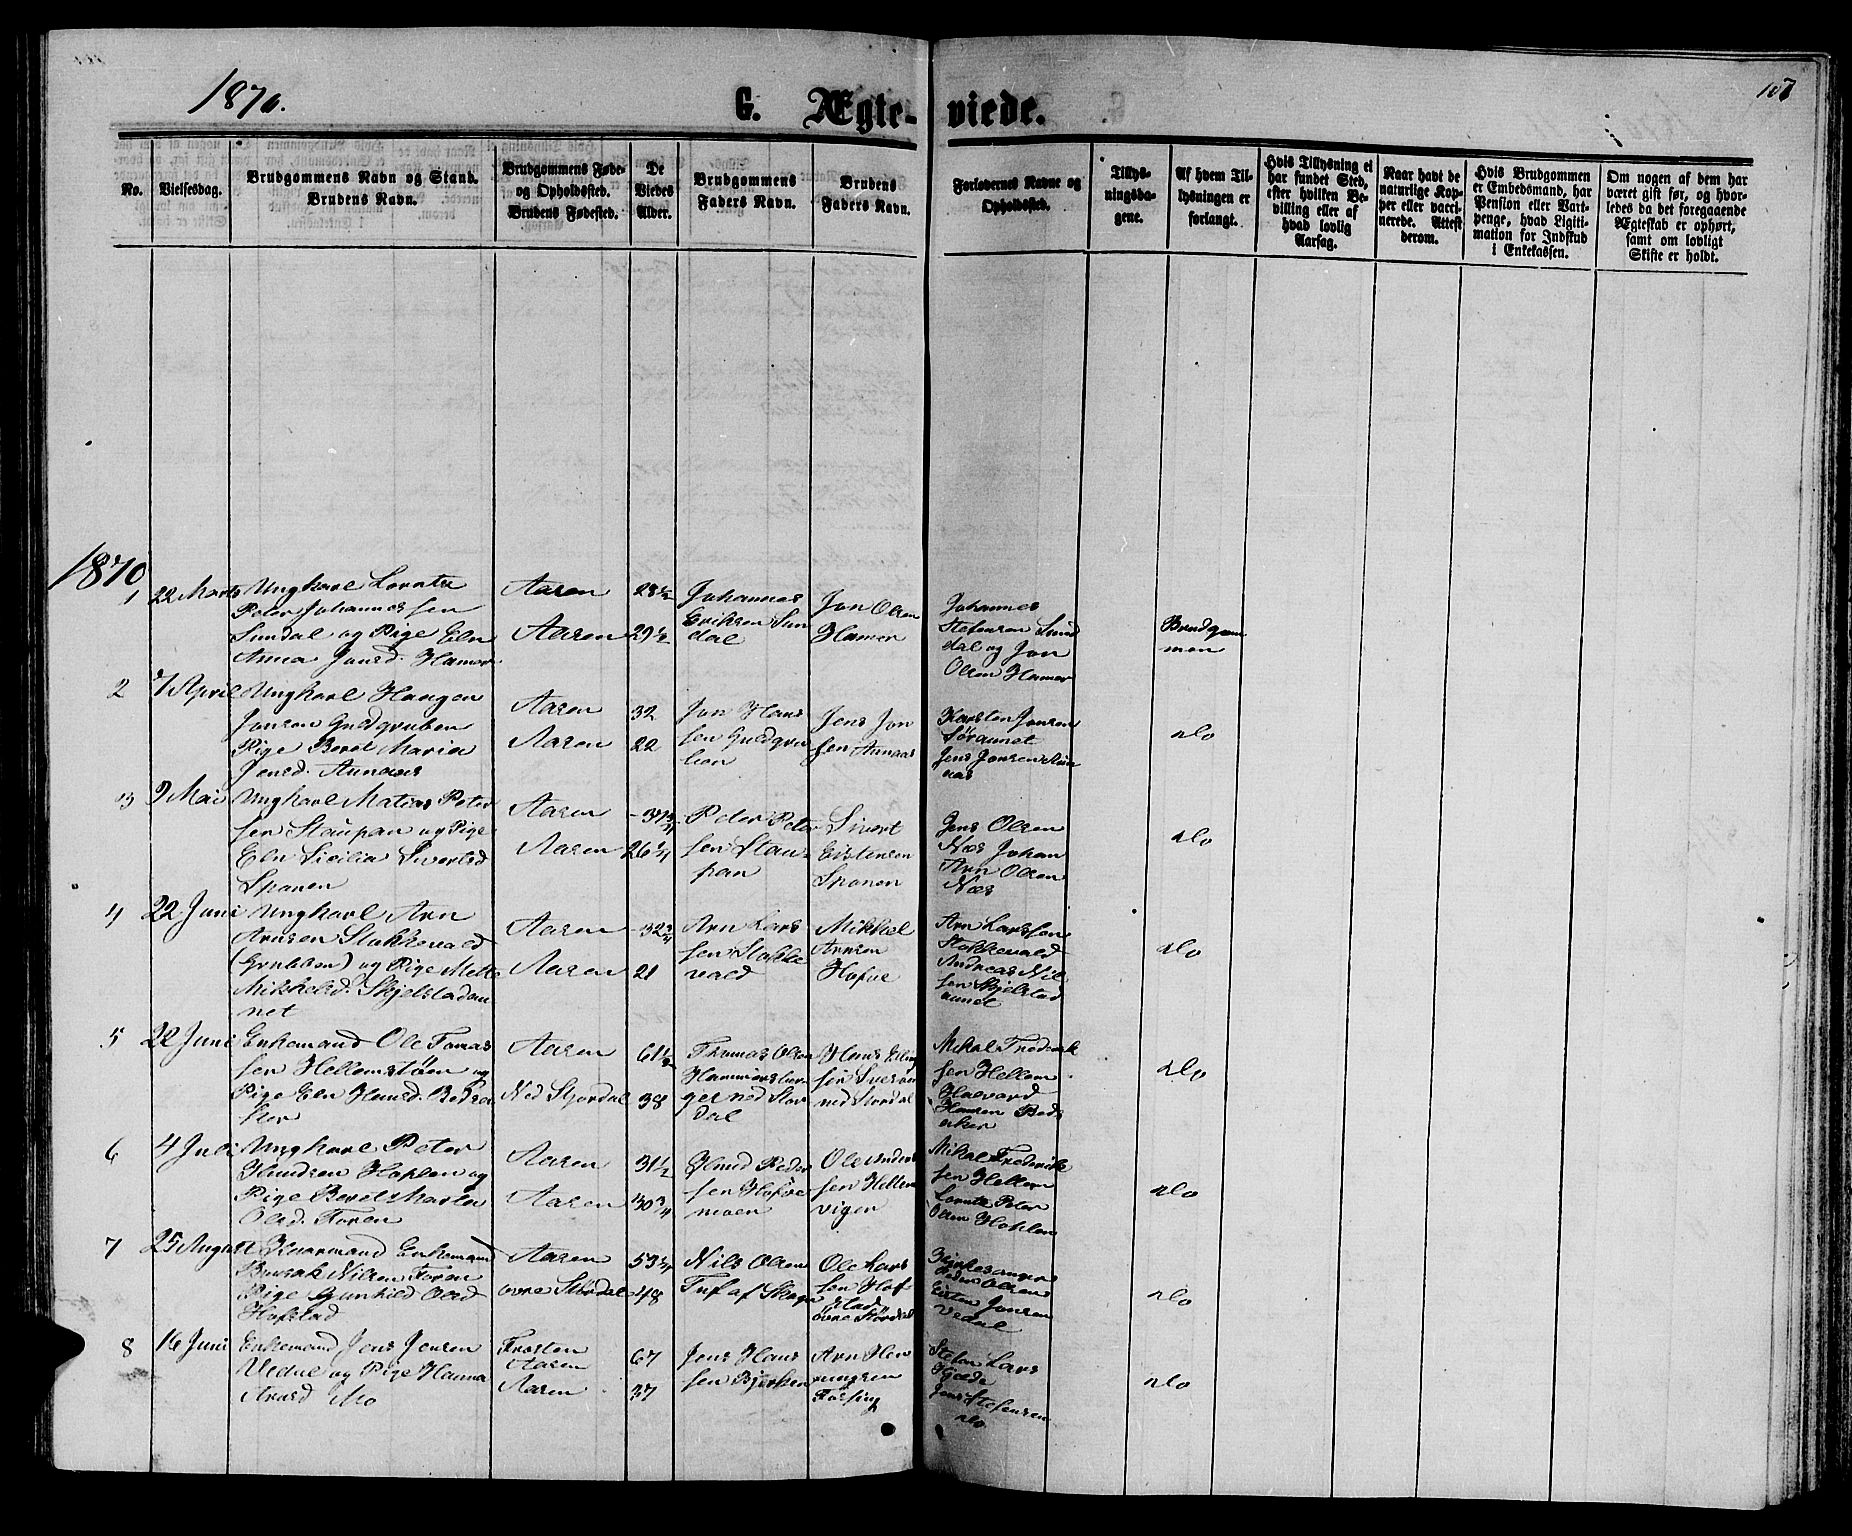 1870.
G. Ægte-viede.
107
No.
Vielsesdag.
Brudgommens Navn og Stand.
Brudens Navn.
Brudgommens Føde-
og Opholdssted.
Brudens Fødested.
De
Viedes
Alder.
Brudgommens
Faders Navn.
Brudens
Faders Navn.
Forlovernes Navne og
Opholdssted.
Tillys-
ningsda-
gene.
Af hvem Til-
lysningen er
forlangt.
Hvis Tillysning ei
har fundet Sted,
efter hvilken Be-
villing eller af
hvad lovlig
Aarsag.
Naar havt de
naturlige Kop-
per eller vacci-
nerede. Attest
derom.
Hvis Brudgommen
er Embedsmand, har
Pension eller Vart-
penge, hvad Ligiti-
mation for Indskud
i Enkekassen.
Om nogen af dem har
været gift før, og hvor-
ledes da det foregaaende
Ægteskab er ophørt,
samt om lovligt
Skifte er holdt.
1870
1
22 Marts
Ungkarl Lornts
Peter Johannessen
Sundal og Pige Eln
Anna Jonsd. Hamer
Aasen
Aasen
28½
29½
Johannes
Eriksen Sun
dal
Jon Olsen
Hamer
Johannes
Stefensen Sund
dal og Jon
Olsen Hamer
Brudgom
men
2
7 April
Ungkarl Haagen
Jonsen Guldgruben
Pige Beret Maria
Jensd. Aunaas
Aasen
Aasen
32
22
Jon Hans
sen Guldgru
ben
Jens Jon
sen Aunaas
Karsten Jonsen
Søraunet
Jens Jonsen Au
naas
do
3
9 Mai
Ungkarl Matias Peter
sen Staupan og Pige
Eln Sicilia Sivertsd
Spanen
Aasen
Aasen
26¼
Peter Peter
sen Stau-
pan
Sivert
Estensen
Spanen
Jens Olsen
Næs Johan
Arn Olsen
Næs
do
4
22 Juni
Ungkarl Arn
Arnsen Stokkevald
(Grubben) og Pige Mette
Mikkelsd. Skjelstadau
net
Aasen
Aasen
32¾
21
Arn Lars
sen Stokke
vald
Mikkel
Arnsen
Hofve
Arn Larssen
Stokkevald
Andreas Nil
sen Skjelstad
aunet
do
5
22 Juni
Enkemand Ole Tomas
sen Hellemstøen og
Pige Eln Hansd.
Aasen
Ned Stjørdal
61½
38
Thomas Olsen
ned Stør
dal
Hans
ned Stordal
Mikal Frederik
sen Hellem
Halvard
Hansen
do
6
4 Juli
Ungkarl Peter
Knudsen Hoplan og
Pige Beret Marta
Olsd. Foren
Aasen
Aasen
31½
30¾
Knud Peder
sen Hofve
moen
Ole Anders
sen Hellem
vigen
Mikal Frederik
sen Hellem
Lornts Peter
Olsen Hoplan
do
7
25 August
Huusmand Enkemand
Nilsen Foren
Pige Gunhild Olsd
Hofstad
Aasen
øvre Størdal
53¼
48
Nils Olsen
af Skogn
Ole Lars
sen Hof
stad
øvre Størdal
Kirkesanger
Peder Olsen
Esten Jonsen
Vedul
do
8
16 Juni
Enkemand Jens Jensen
Vedul og Pige Hanna
Arnsd Mo
Frosten
Aasen
Aasen
67
37
Jens Hans
sen Bjerken
Arn Hen
ningsen
Fossing
Stefan Lars
Jens Stefensen
do